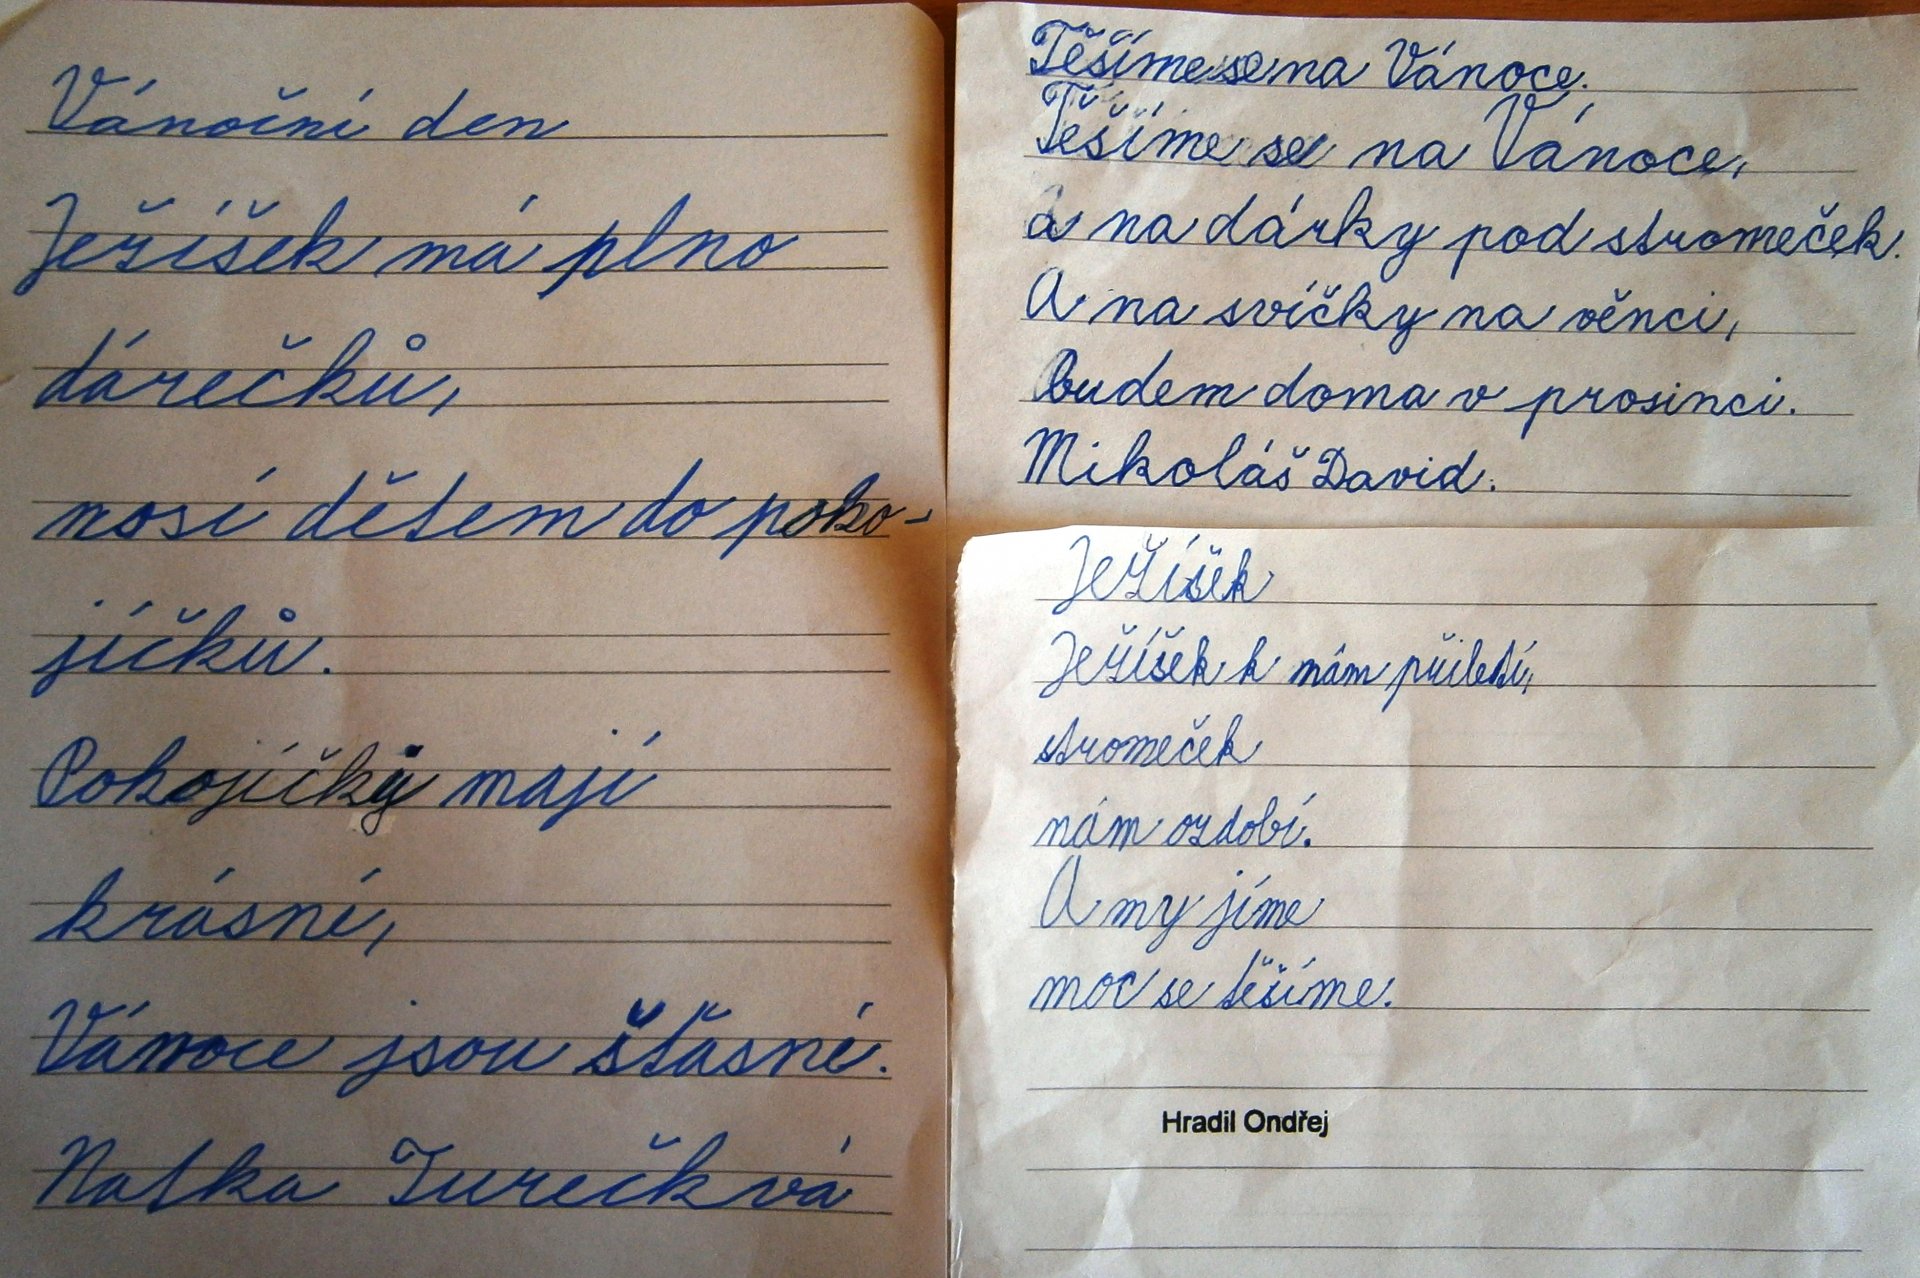 Vánoční den
Ježíšek má plno
dárečků,
nosí dětem do poko-
jíčků.
Pokojíčky mají
krásné,
Vánoce jsou šťasné.
Natka Turečková
Těšíme se na Vánoce.
Těšíme se na Vánoce,
a na dárky pod stromeček.
A na svíčky na věnci,
budem doma v prosinci.
Mikoláš David.
Ježíšek
Ježíšek k nám přiletí,
stromeček
nám ozdobí.
A my jíme
moc se těšíme.
Hradil Ondřej